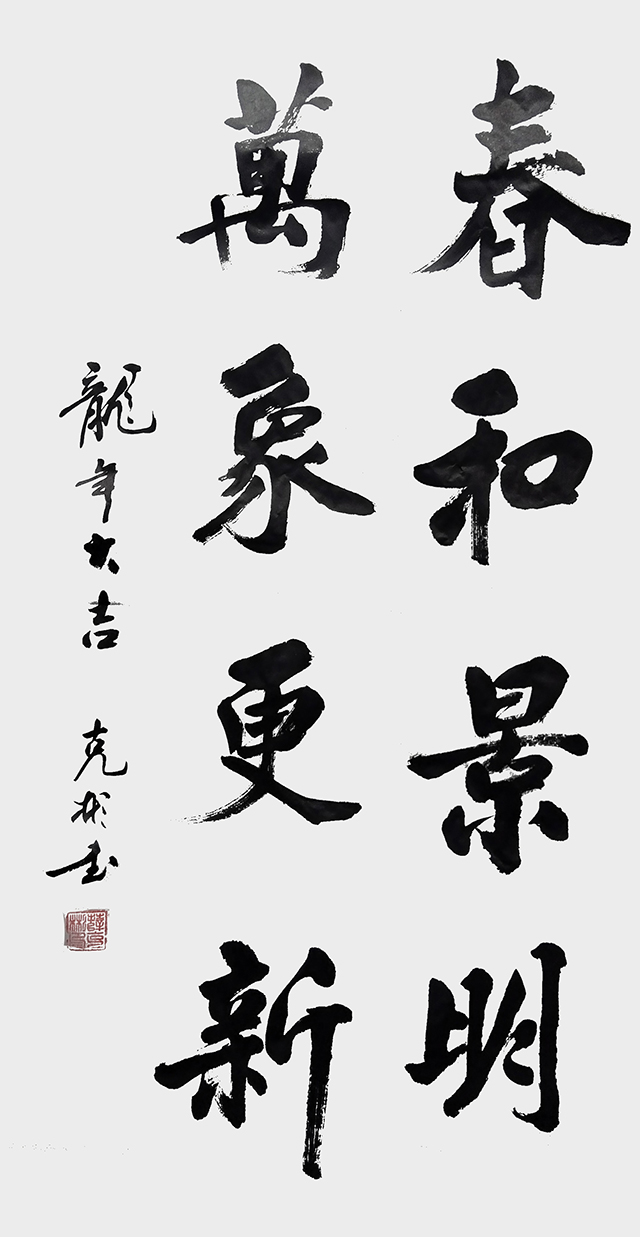 春和景明
萬象更新
龍年大吉 克彬书